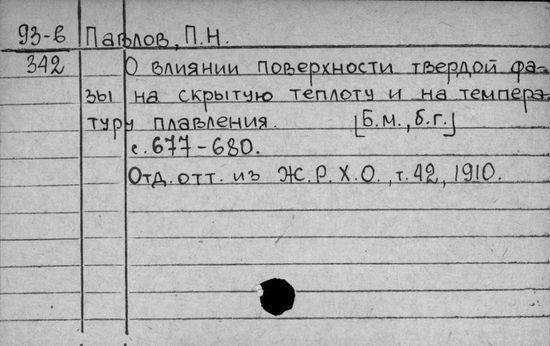 93-в Павлов, П.Н.
342 О влиянии поверхности твердой фа-
зы на скрытую теплоту и на темпера-
туру плавления. [Б.м., б.г.]
с. 677-680.
Отд. отт. из Ж.Р.Х.О., т.42, 1910.